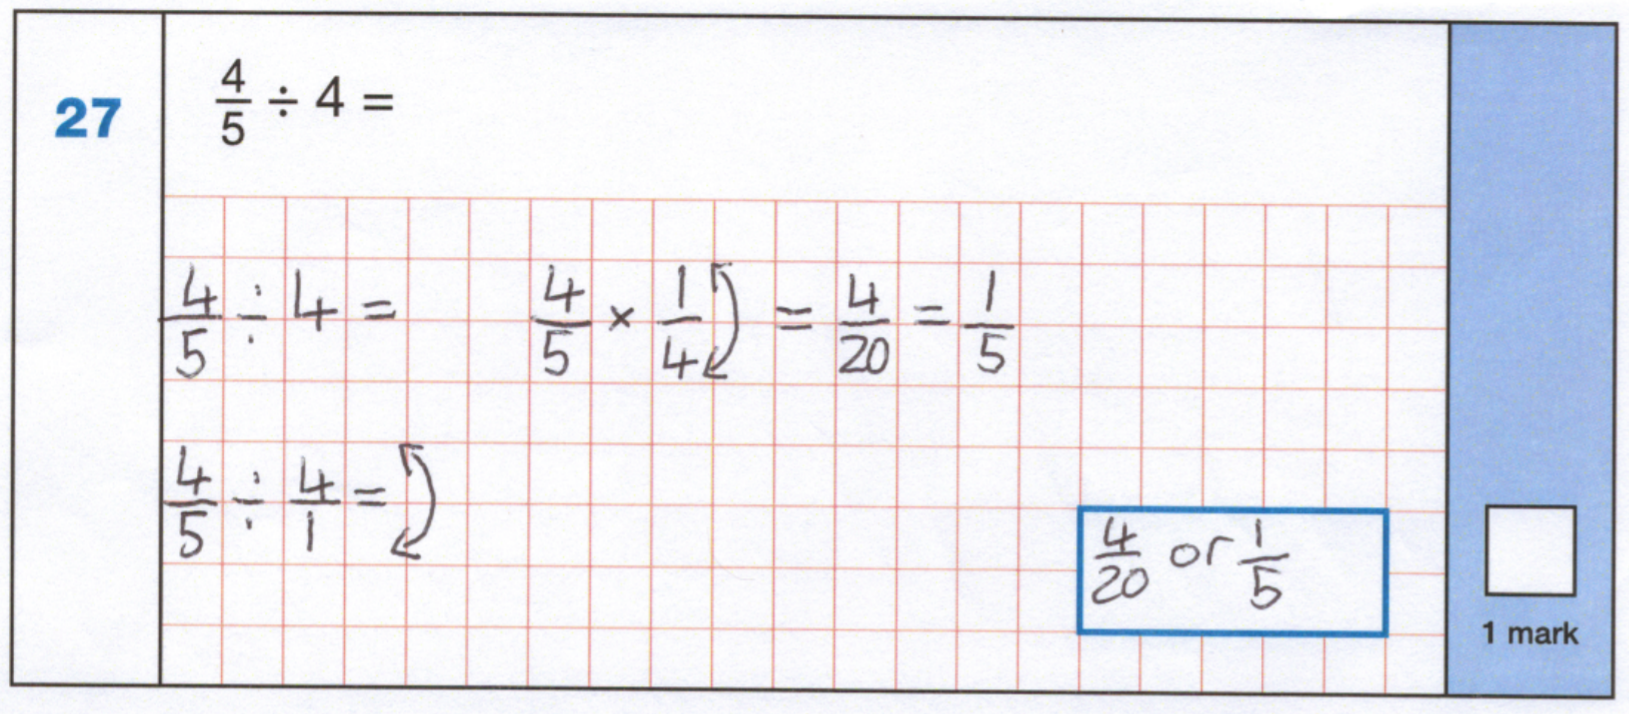 27
4/5 ÷ 4 =
4/5 ÷ 4 = 4/5 × 1/4 = 4/20 = 1/5
4/5 ÷ 4/1 =
4/20 or 1/5
1 mark